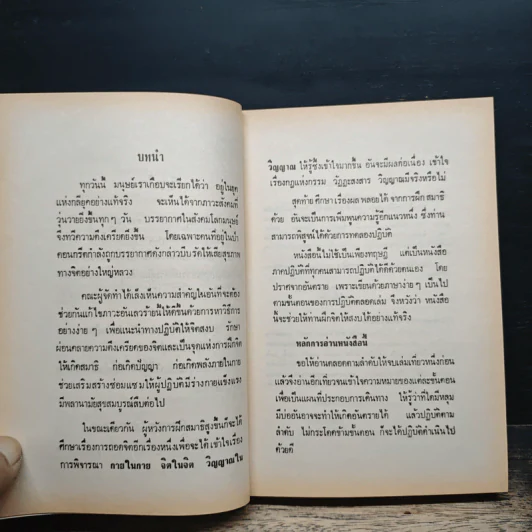 บทนำ
ทุกวันนี้ มนุษย์เราเกือบจะเรียกได้ว่า อยู่ในยุค
แห่งกลียุคอย่างแท้จริง จะเห็นได้จากภาวะสังคมที่
วุ่นวายยิ่งขึ้นทุก ๆ วัน บรรยากาศในสังคมโลกมนุษย์
จึงทวีความตึงเครียดยิ่งขึ้น โดยเฉพาะคนที่อยู่ในป่า
คอนกรีตกำลังถูกบรรยากาศดังกล่าวบีบรัดให้เสียสุขภาพ
ทางจิตอย่างใหญ่หลวง
คณะผู้จัดทำได้เล็งเห็นความสำคัญในอันที่จะต้อง
ช่วยกันแก้ไขภาวะอันเลวร้ายนี้ให้ดีขึ้นด้วยการหาวิธีการ
อย่างง่าย ๆ เพื่อแนะนำทางปฏิบัติให้จิตสงบ รักษา
ผ่อนคลายความตึงเครียดของจิตและเป็นจุดแห่งการที่เกิด
ให้เกิดสมาธิ ก่อเกิดปัญญา ก่อเกิดพลังภายในกาย
ช่วยเสริมสร้างซ่อมแซมให้ผู้ปฏิบัติมีร่างกายแข็งแรง
มีพลานามัยสุขสมบูรณ์สืบต่อไป
ในขณะเดียวกัน ผู้หวังการฝึกสมาธิสูงขึ้นก็จะได้
ศึกษาเรื่องการถอดจิตอีกเรื่องหนึ่งเพื่อจะได้เข้าใจเรื่อง
การพิจารณา กายในกาย จิตในจิต วิญญาณใน
วิญญาณ ให้รู้ซึ้งเข้าใจมากขึ้น อันจะมีผลต่อเนื่อง เข้าใจ
เรื่องกฎแห่งกรรม วัฏฏะสงสาร วิญญาณมีจริงหรือไม่
สุดท้าย ศึกษาเรื่องผลพลอยได้ จากการฝึกสมาธิ
ด้วย อันจะเป็นการเพิ่มพูนความรู้อีกแนวหนึ่ง ซึ่งท่าน
สามารถพิสูจน์ได้ด้วยการทดลองปฏิบัติ
หนังสือนี้ไม่ใช้เป็นเพียงทฤษฎี แต่เป็นหนังสือ
ภาคปฏิบัติที่ทุกคนสามารถปฏิบัติได้ด้วยตนเอง โดย
ปราศจากอันตราย เพราะเขียนด้วยภาษาง่าย ๆ เป็นไป
ตามขั้นตอนของการปฏิบัติตลอดเล่ม จึงหวังว่า หนังสือ
นี้จะช่วยให้ท่านฝึกจิตให้สงบได้อย่างแท้จริง
หลักการอ่านหนังสือนี้
ขอให้อ่านตลอดตามลำดับให้จบเล่มเที่ยวหนึ่งก่อน
แล้วจึงอ่านอีกเที่ยวจนเข้าใจความหมายของแต่ละขั้นตอน
เพื่อเป็นแผนที่ประกอบการเดินทาง ให้รู้ว่าที่ใดมีหลุม
มีบ่ออันอาจจะทำให้เกิดอันตรายได้ แล้วปฏิบัติตาม
ลำดับ ไม่กระโดดข้ามขั้นตอน ก็จะได้ปฏิบัติดำเนินไป
ด้วยดี